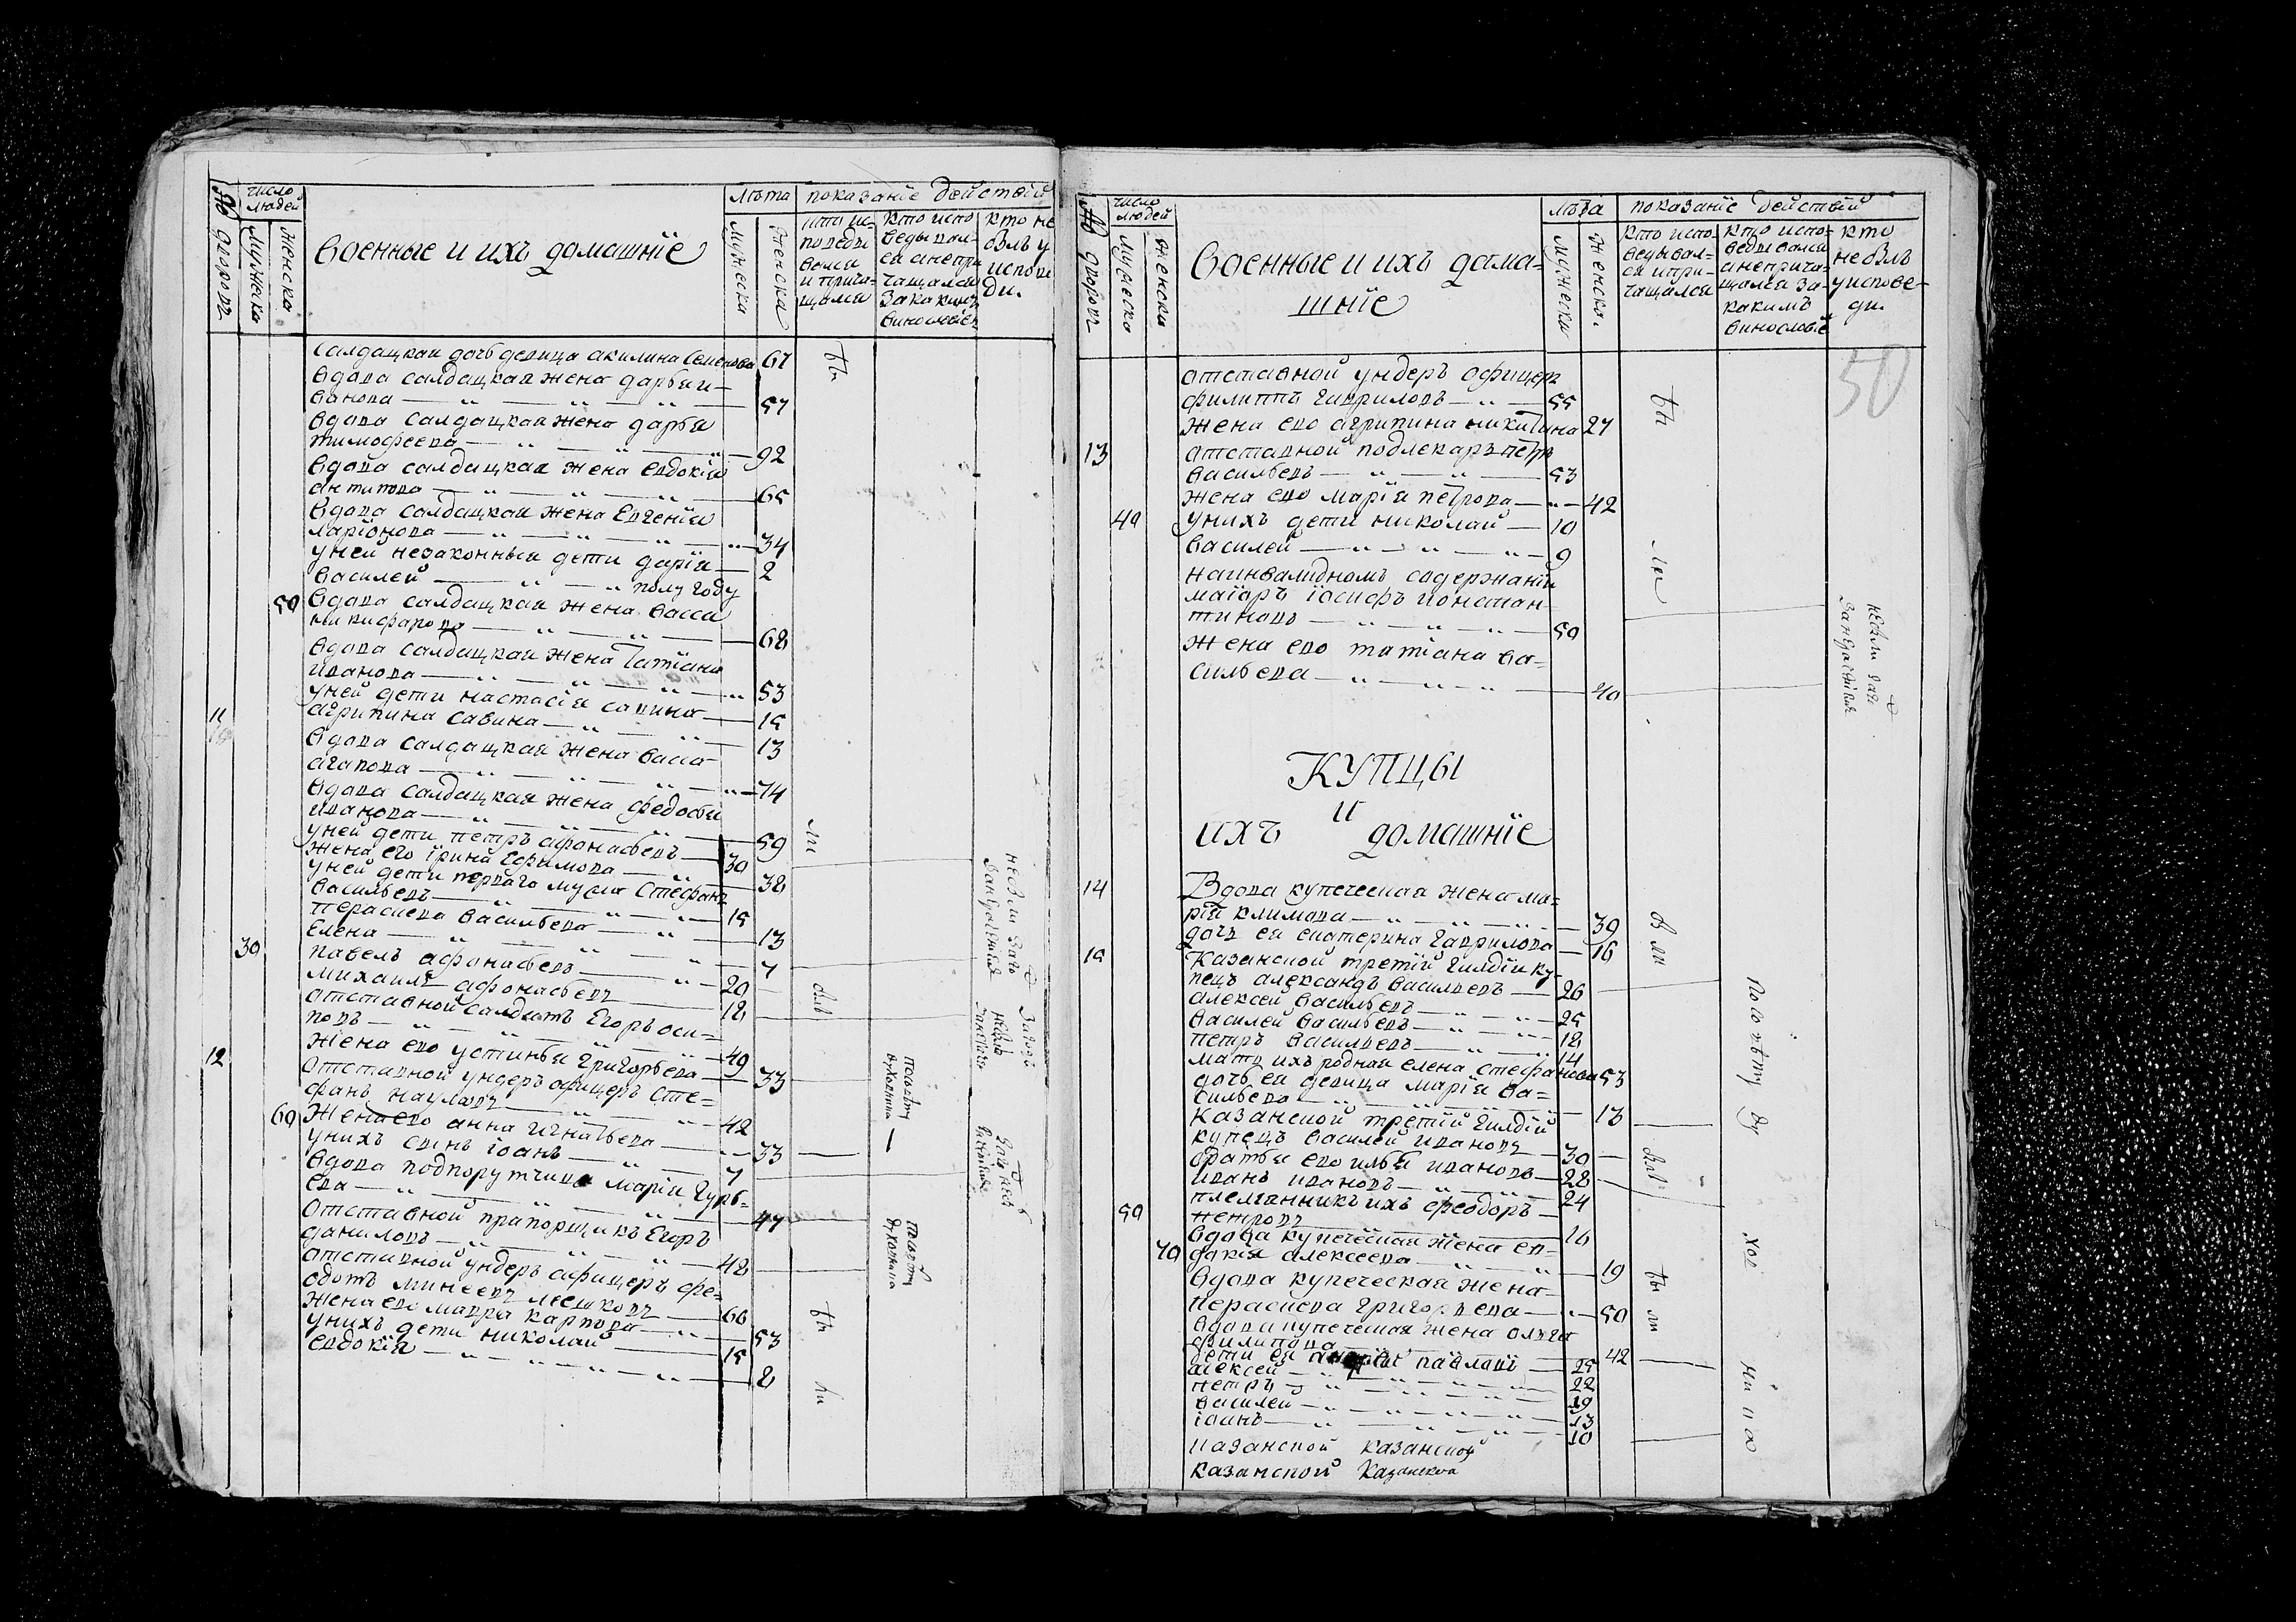 № дворовъ
число людей
Мужеска
Женска
Военные и ихъ домашнїе
лѣта
Мужеска
Женска
показанїе действїй
кто испо
веды вал
ся а непри
чащался
за какимъ
винословїемъ
кто не
былъ у
испове
ди.
Салдацкая дочь девица акилина Семенова 67
Вдова салдацкая жена дарья и-
ванова 57
Вдова салдацкая жена дарья
тимофеева 92
Вдова салдацкая жена евдокїя
антипова 65
Вдова салдацкая жена Евгенїя
ларїонова 34
у ней незаконныя дети дарїя 2
Василей полу году
50 Вдова салдацкая жена васса
никифарова 68
Вдова салдацкая жена татїана
иванова 53
у ней дети настасїя савина 15
11 агрипина савина 13
Вдова салдацкая жена васса
агапова 74
Вдова салдацкая жена федосья
иванова 59
у ней дети петръ афонасьевъ 30
жена его ирина Ефимова 38
у ней дети перваго мужа Стефанъ
васильевъ 15
Параскева васильева 13
Елена 7
30 павелъ афонасьевъ 20
михаилъ афонасьевъ 18
отставной салдатъ Егоръ оси=
повъ 49
12 жена ево устинья григорьева 33
Отставной ундеръ офицеръ Сте=
фанъ наумовъ 42
60 Жена ево анна игнатьева 33
у нихъ сынъ їоанъ 7
Вдова подпорутчица марїя гурь=
ева 47
Отставной прапорщикъ Егоръ
даниловъ 42
отставной ундеръ афицеръ фе=
дотъ минеевъ мешковъ 60
жена ево мавра карпова 53
у нихъ дети николай 15
евдокїя 8
№ дворовъ
число людей
Мужеско
Женска
Военные и ихъ дома=
шнїе
лѣта
Мужеска
Женска.
показанїе действїй
кто испо-
ведывал-
ся и при-
чащался
кто испо-
ведывался
а неприча-
щался за-
какимъ
винословїе
кто
не былъ
у испове-
ди.
50
отставной ундеръ офицеръ
филиппъ гавриловъ 55
жена ево агрипина никитина 27
13 отставной подлекарь петръ
васильевъ 53
жена ево марїя петрова 42
40 у нихъ дети николай 10
василей 9
на инвалидномъ содержанїи
маїоръ їосифъ констан-
тиновъ 50
жена ево татїана ва=
сильева 40
КУПЦЫ
и
ихъ домашнїе
14 Вдова купеческая жена ма=
рїя климова 39
дочь ея екатерина гаврилова 16
15 Казанской третїй гилдїи ку-
пецъ александъ васильевъ 26
алексей васильевъ 25
василей васильевъ 18
петръ васильевъ 14
мать ихъ родная елена стефанова 53
дочь ея девица марїя ва=
сильева 13
казанской третїй гилдїй
купецъ василей ивановъ 30
братья ево илья ивановъ 28
иванъ ивановъ 24
племянникъ ихъ феодоръ
50 петровъ 16
Вдова купеческая жена ев=
70 докїя алексеева 19
Вдова купеческая жена
Параскева григорьева 50
вдова купеческая жена олга
филипова 42
дети ея павлови 25
алексей 22
петръ 19
василей 13
їоанъ 10
казанской казанской
казанской казанской